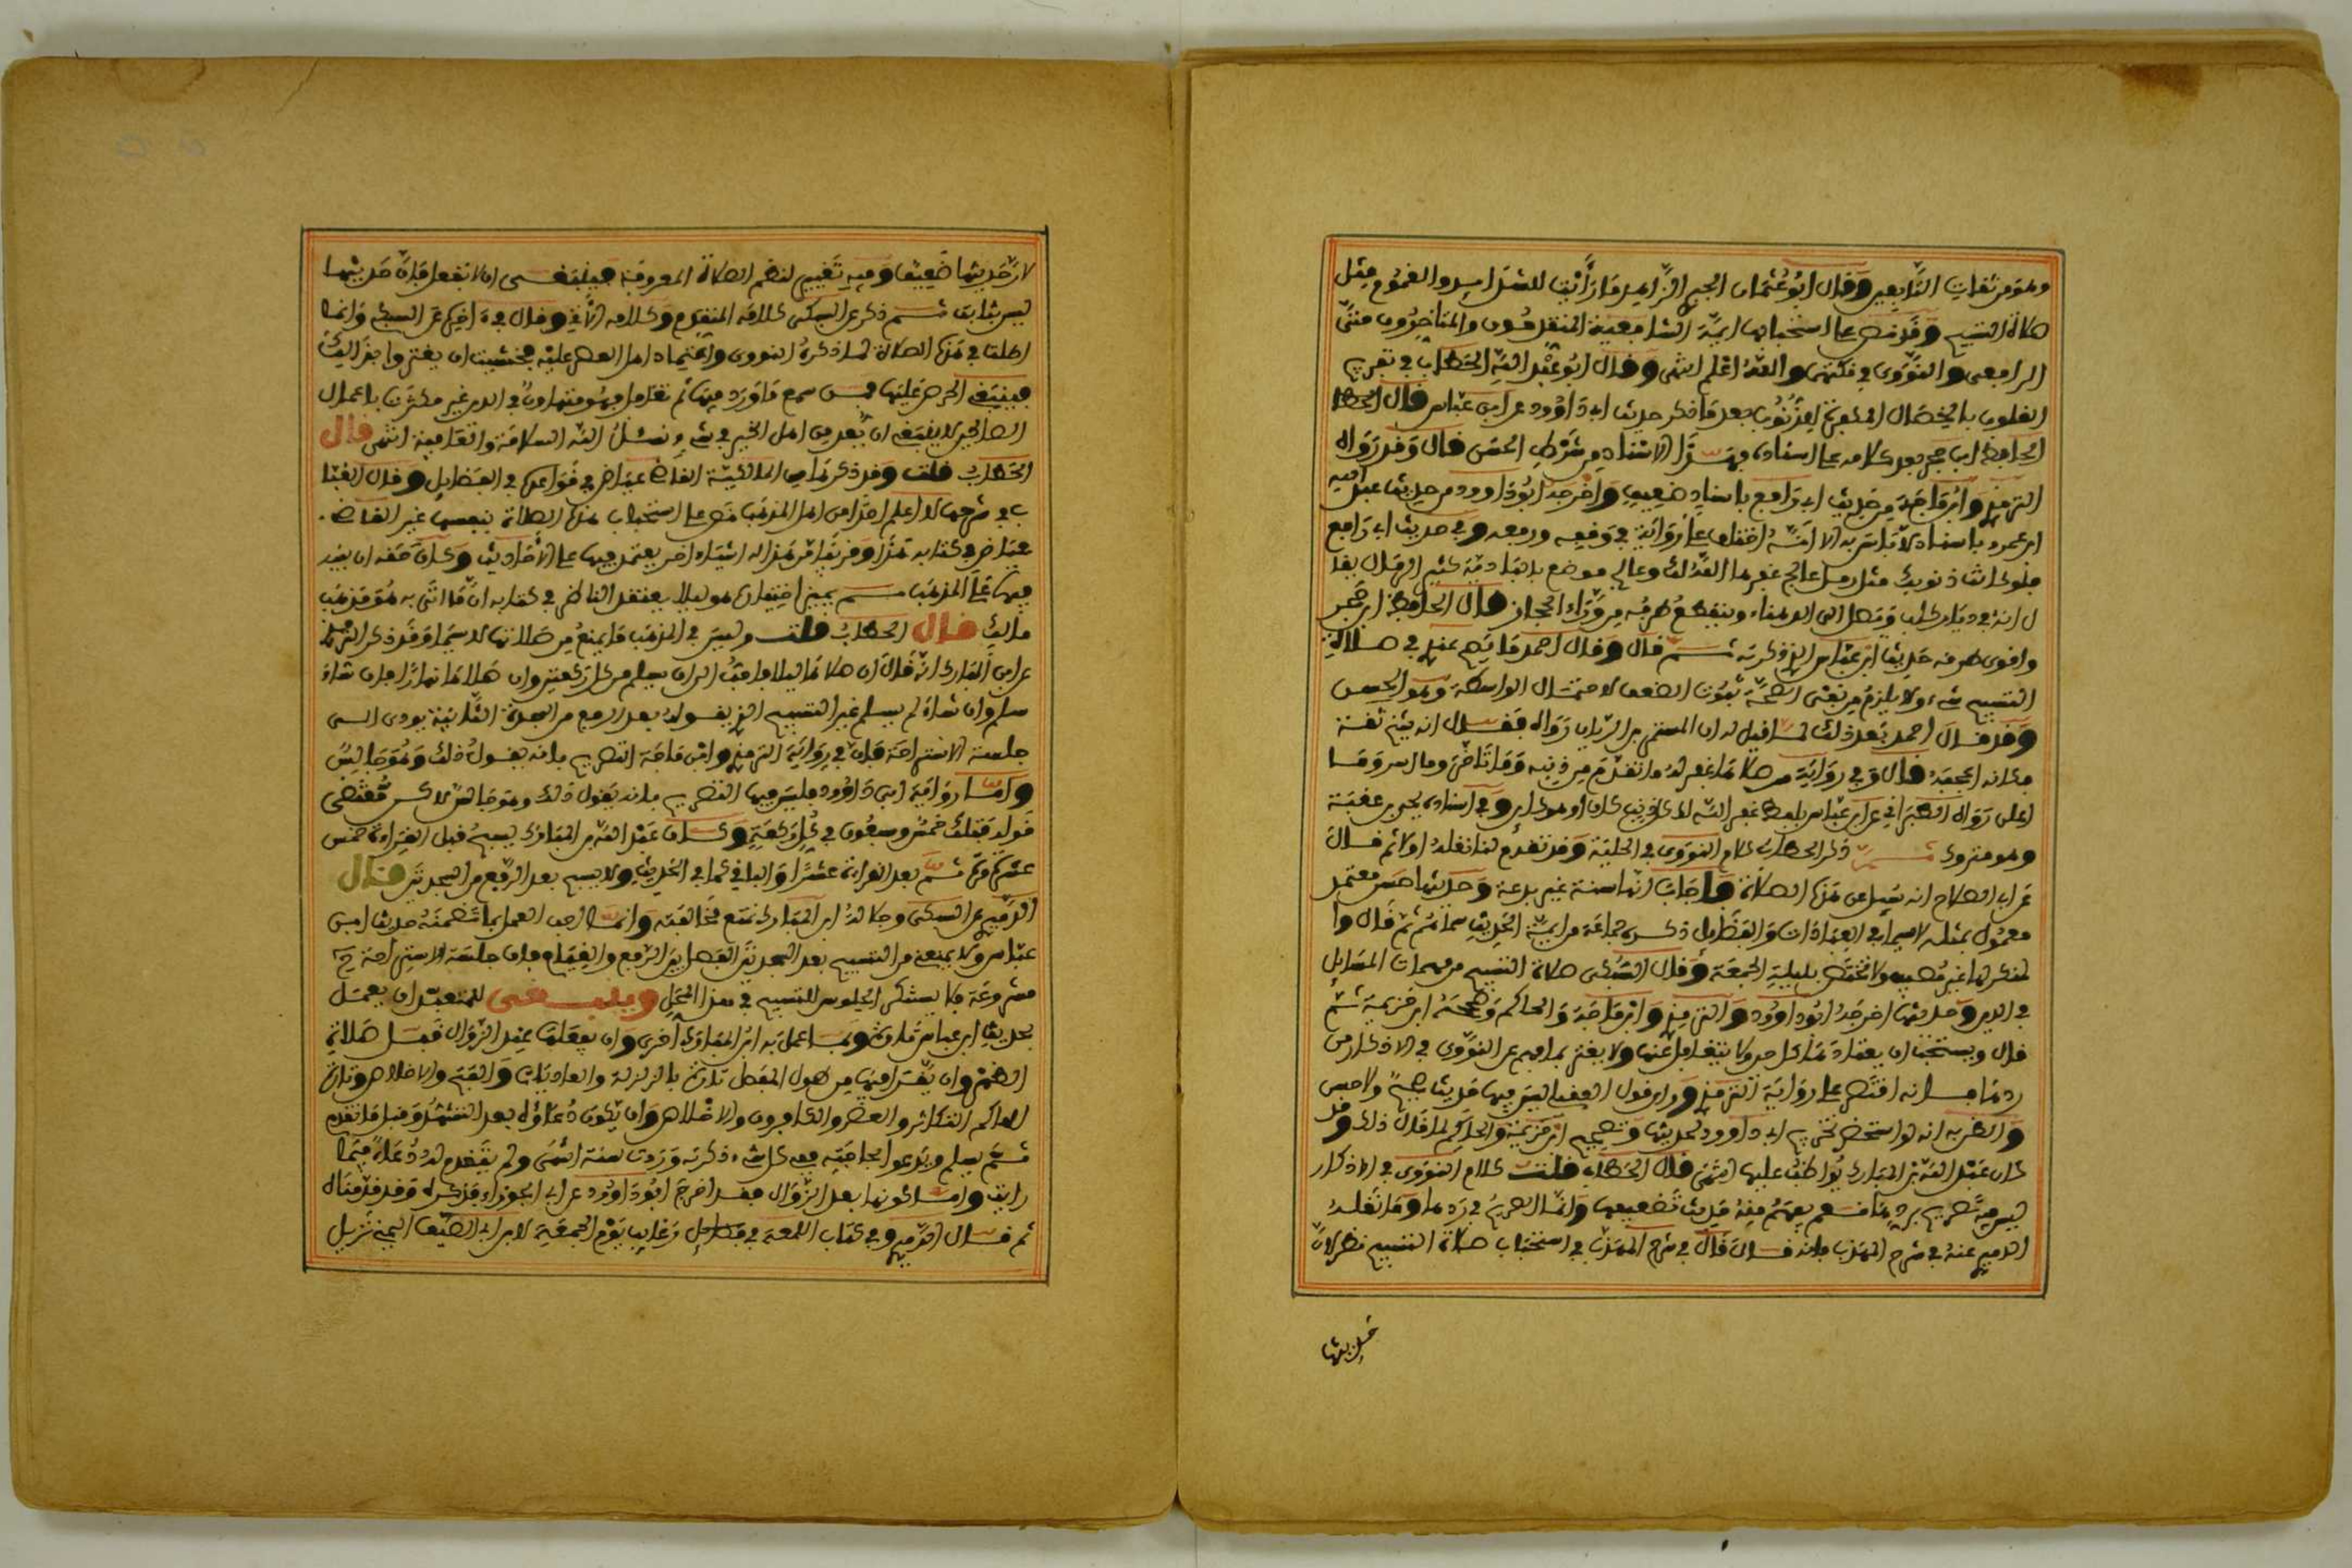 وهو من ثقات التابعين وقال ابو عثمان الحيري الزاهد ما رأيت للشدايد والغموم مثل
صلاة التسبيح وقد نص على استحبابها ايمة الشافعية المتقدمون والمتأخرون حتى
الرافعي والنووي في نكتهي والله اعلم انتهى وقال ابو عبد الله الحطاب في تفريح
القلوب بالخصال المكفرة للذنوب بعد ما ذكر حديث ابى داوود عن ابن عباس قال الحطا
الحافظ ابن حجر بعد كلامه على اسناده فهذا الاسناد من شرط الحسن قال وقد رواه
الترمذي وابن ماجه من حديث ابي رافع باسناد ضعيف واخرجه ابو داوود من حديث عبد الله
ابن عمرو باسناد لا باس به الا انه اختلف على رواية في وقفه ورفعه وفي حديث ابي رافع
فلو كانت ذنوبك مثل رمل عالج غفرها الله لك وعالج موضع بالبادية كثير الرمال يقا
ل انه في ديار كلب ومتصل الى الدهناء وينقطع طرفه من وراء الحجاز قال الحافظ ابن حجر
واقوى طرقه حديث ابن عباس الذي ذكرته ثم قال وقال احمد ما يصح عندي في صلاة
التسبيح شيء ولا يلزم من نفي الصحة ثبوت الضعف لاحتمال الواسطة وهو الحسن
وقد قال احمد بعد ذلك لما قيل له ان المستمر بن الريان رواه فقال انه شيخ ثقة
فكانه اعجبه قال وفي رواية من صلاها غفر له ما تقدم من ذنبه وما تاخر وما اسر وما
اعلن رواه الطبراني عن ابن عباس بلفظ غفر الله له كل ذنب كان او هو كاين وفي اسناده يحيى بن عقبة
وهو متروك ثم ذكر الحطاب كلام النووي في الحلية وقد تقدم لنا نقله اولا ثم قال
عن ابن الصلاح انه سئل عن هذه الصلاة فاجاب انها سنة غير بدعة وحديثها حسن معتمد
معمول بمثله لا سيما في العبادات والفضايل ذكره جماعة من ايمة الحديث سماهم ثم قال وا
لمنكر لها غير مصيب ولا تختص بليلة الجمعة وقال السبكي صلاة التسبيح من مهمات المسايل
في الدين وحديثها اخرجه ابو داوود والترمذي وابن ماجة والحاكم وصححه ابن خزيمة ثم
قال ويستحب ان يعتادها كل حين ولا يتغافل عنها ولا يغتر بما فهم عن النووي في الاذكار من
ردها فانه اقتصر على رواية الترمذي وراى قول العقيلي ليس فيها حديث صحيح ولا حسن
والظن به انه لو استحضر تخريج ابي داوود لحديثها وتصحيح ابن خزيمة والحاكم لما قال ذلك وقد
كان عبد الله بن المبارك يواظب عليها انتهى قال الحطاب قلت كلام النووي في الاذكار
ليس فيه تصريح بردها نعم يفهم منه حديث تضعيفها وانما الصريح في ردها وما نقله
الدميري عنه في شرح المهذب فانه قال قال في شرح المهذب في استحباب صلاة التسبيح نظر لان
حديثها
لان حديثها ضعيف وفيه تغيير لنظم الصلاة المعروفة فينبغي ان لا تفعل فان حديثها
ليس بثابت ثم ذكر عن السبكي كلامه المتقدم وكلامه الآتي وقال في اخره عن السبكي وانما
اطلت في هذه الصلاة لما ذكره النووي واعتماد اهل العصر عليه فخشيت ان يغتر واحد بذلك
فينبغي الحرص عليها فمن سمع ما ورد فيها ثم تغافل فهو متهاون في الدين غير مكترث باعمال
الصالحين لا ينبغي ان يعد من اهل الخير في شيء ونسئل الله السلامة والعافية انتهى قال
الحطاب قلت وقد ذكرها من المالكية القاضي عياض في قواعده في الفضايل وقال القبا
ب في شرحها لا اعلم احدا من اهل المذهب نص على استحباب هذه الصلاة بنفسها غير القاضي
عياض في كتابه هذا وقد تقدم له اشياء اخر يعتمد فيها على الأحاديث وكان حقه ان ينبه
فيها على المذهب ثم يبين اختياره هو ليلا يعتقد الناظر في كتابه ان ما اتى به هو مذهب
مالك قال الحطاب قلت وليس في المذهب ما يمنع من صلاتها لا سيما وقد ذكر الترمذي
عن ابن المبارك انه قال ان صلاها ليلا فاحب الي ان يسلم من كل ركعتين وان صلاها نهارا فان شاء
سلم وان شاء لم يسلم غير التسبيح الذي يقوله بعد الرفع من السجدة الثانية يودي الى
جلسة الاستراحة فان في رواية الترمذي وابن ماجة التصريح بانه يقول ذلك وهو جالس
واما رواية ابي داوود فليس فيها التصريح بانه يقول ذلك وهو جالس لاكن مقتضى
قوله فتلك خمس وسبعون في كل ركعة وكان عبد الله بن المبارك يسبح قبل القراءة خمس
عشرة مرة ثم بعد القراءة عشرا والباقي كما في الحديث ولا يسبح بعد الرفع من السجدتين قال
الدميري عن السبكي وجلالة ابن المبارك تمنع مخالفته وانما احب العمل بما تضمنه حديث ابن
عباس ولا يمنعني من التسبيح بعد السجدتين الفصل بين الرفع والقيام فان جلسة الاستراحة ح
مشروعة فلا يستنكر الجلوس للتسبيح في هذا المحل وينبغي للمتعبد ان يعمل
بحديث ابن عباس تارة وبما عمل به ابن المبارك اخرى وان يفعلها عند الزوال قبل صلاة
الظهر وان يقرا فيها من طول المفصل تارة بالزلزلة والعاديات والفتح والاخلاص وتارة
الهاكم التكاثر والعصر والكافرون والاخلاص وان يكون دعاؤه بعد التشهد وقبل ما تقدم
ثم يسلم ويدعو لحاجته ففي كل شيء ذكرته وردت سنة انتهى ولم يتقدم له دعاء فيما
رايت واما كونها بعد الزوال فقد اخرج ابو داوود عن ابي الجوزاء فذكره وقد قدمناه
ثم قال الدميري وفي كتاب اللمعة في رغايب يوم الجمعة لابن ابي الصيف اليمني نزيل